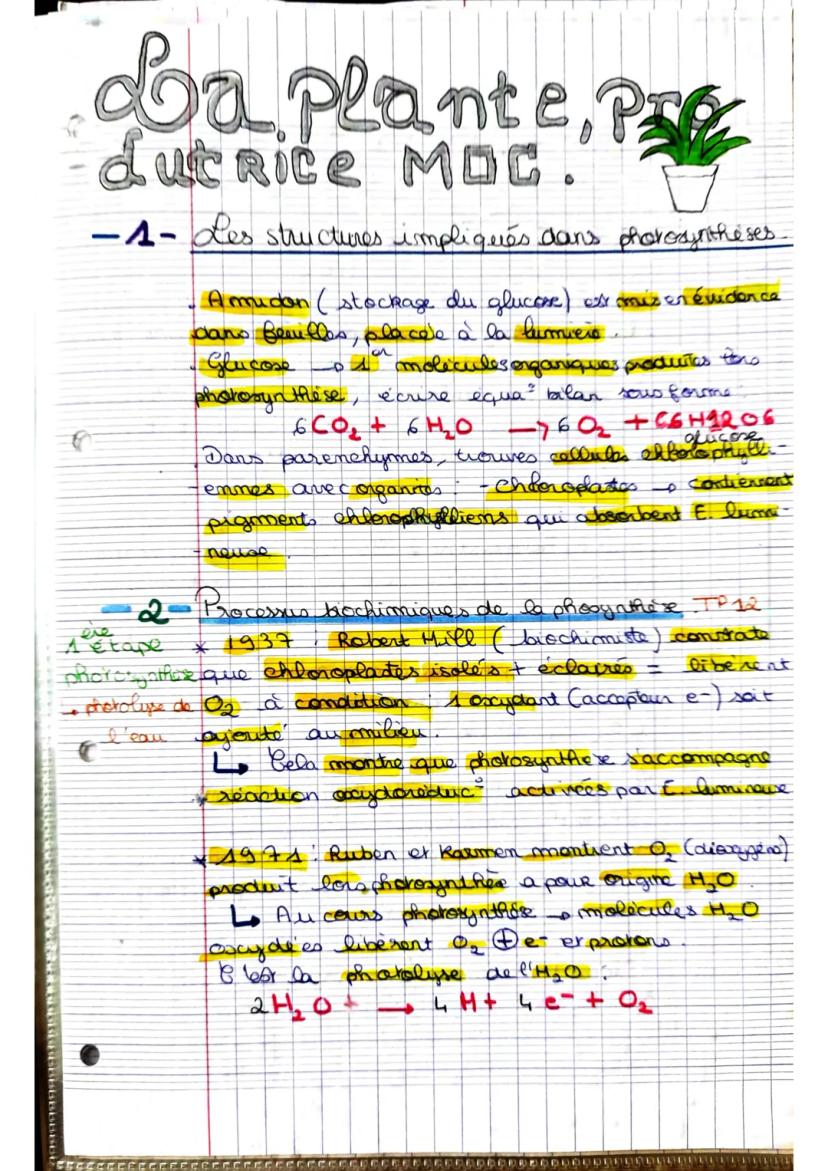 La plante, pro
dutrice MOC.
-1- Les structures impliqués dans photosynthèses.
. Amudon ( stockage du glucose) est mis en évidence
dans feuilles, placée à la lumière.
. Glucose → 1er molécules organiques produites lors
photosynthèse, écrire équa° bilan sous forme:
6CO2 + 6 H2O → 6 O2 + C6H12O6
glucose
. Dans parenchymes, trouves cellules chlorophylli-
ennes avec organites : - chloroplastes → contiennent
pigments chlorophylliens qui absorbent E. lumi-
neuse.
-2- Processus biochimiques de la phosynthèse. TP12
1ère étape
photosynthèse
→ photolyse de
l'eau
* 1937 : Robert Hill ( biochimiste) constate
que chloroplastes isolés + éclairés = libèrent
O2 à condition : 1 oxydant (accepteur e-) soit
ajouté au milieu.
↳ Cela montre que photosynthèse s'accompagne
* réaction oxydoréduc° activées par E. lumineuse
* 1971 : Ruben et Kasmen montrent O2 (dioxygène)
produit lors photosynthèse a pour origine H2O.
↳ Au cours photosynthèse → molécules H2O
oxydées libèrent O2 ⊕ e- et protons.
C'est la photolyse de l'H2O :
2H2O + → 4 H+ 4 e- + O2